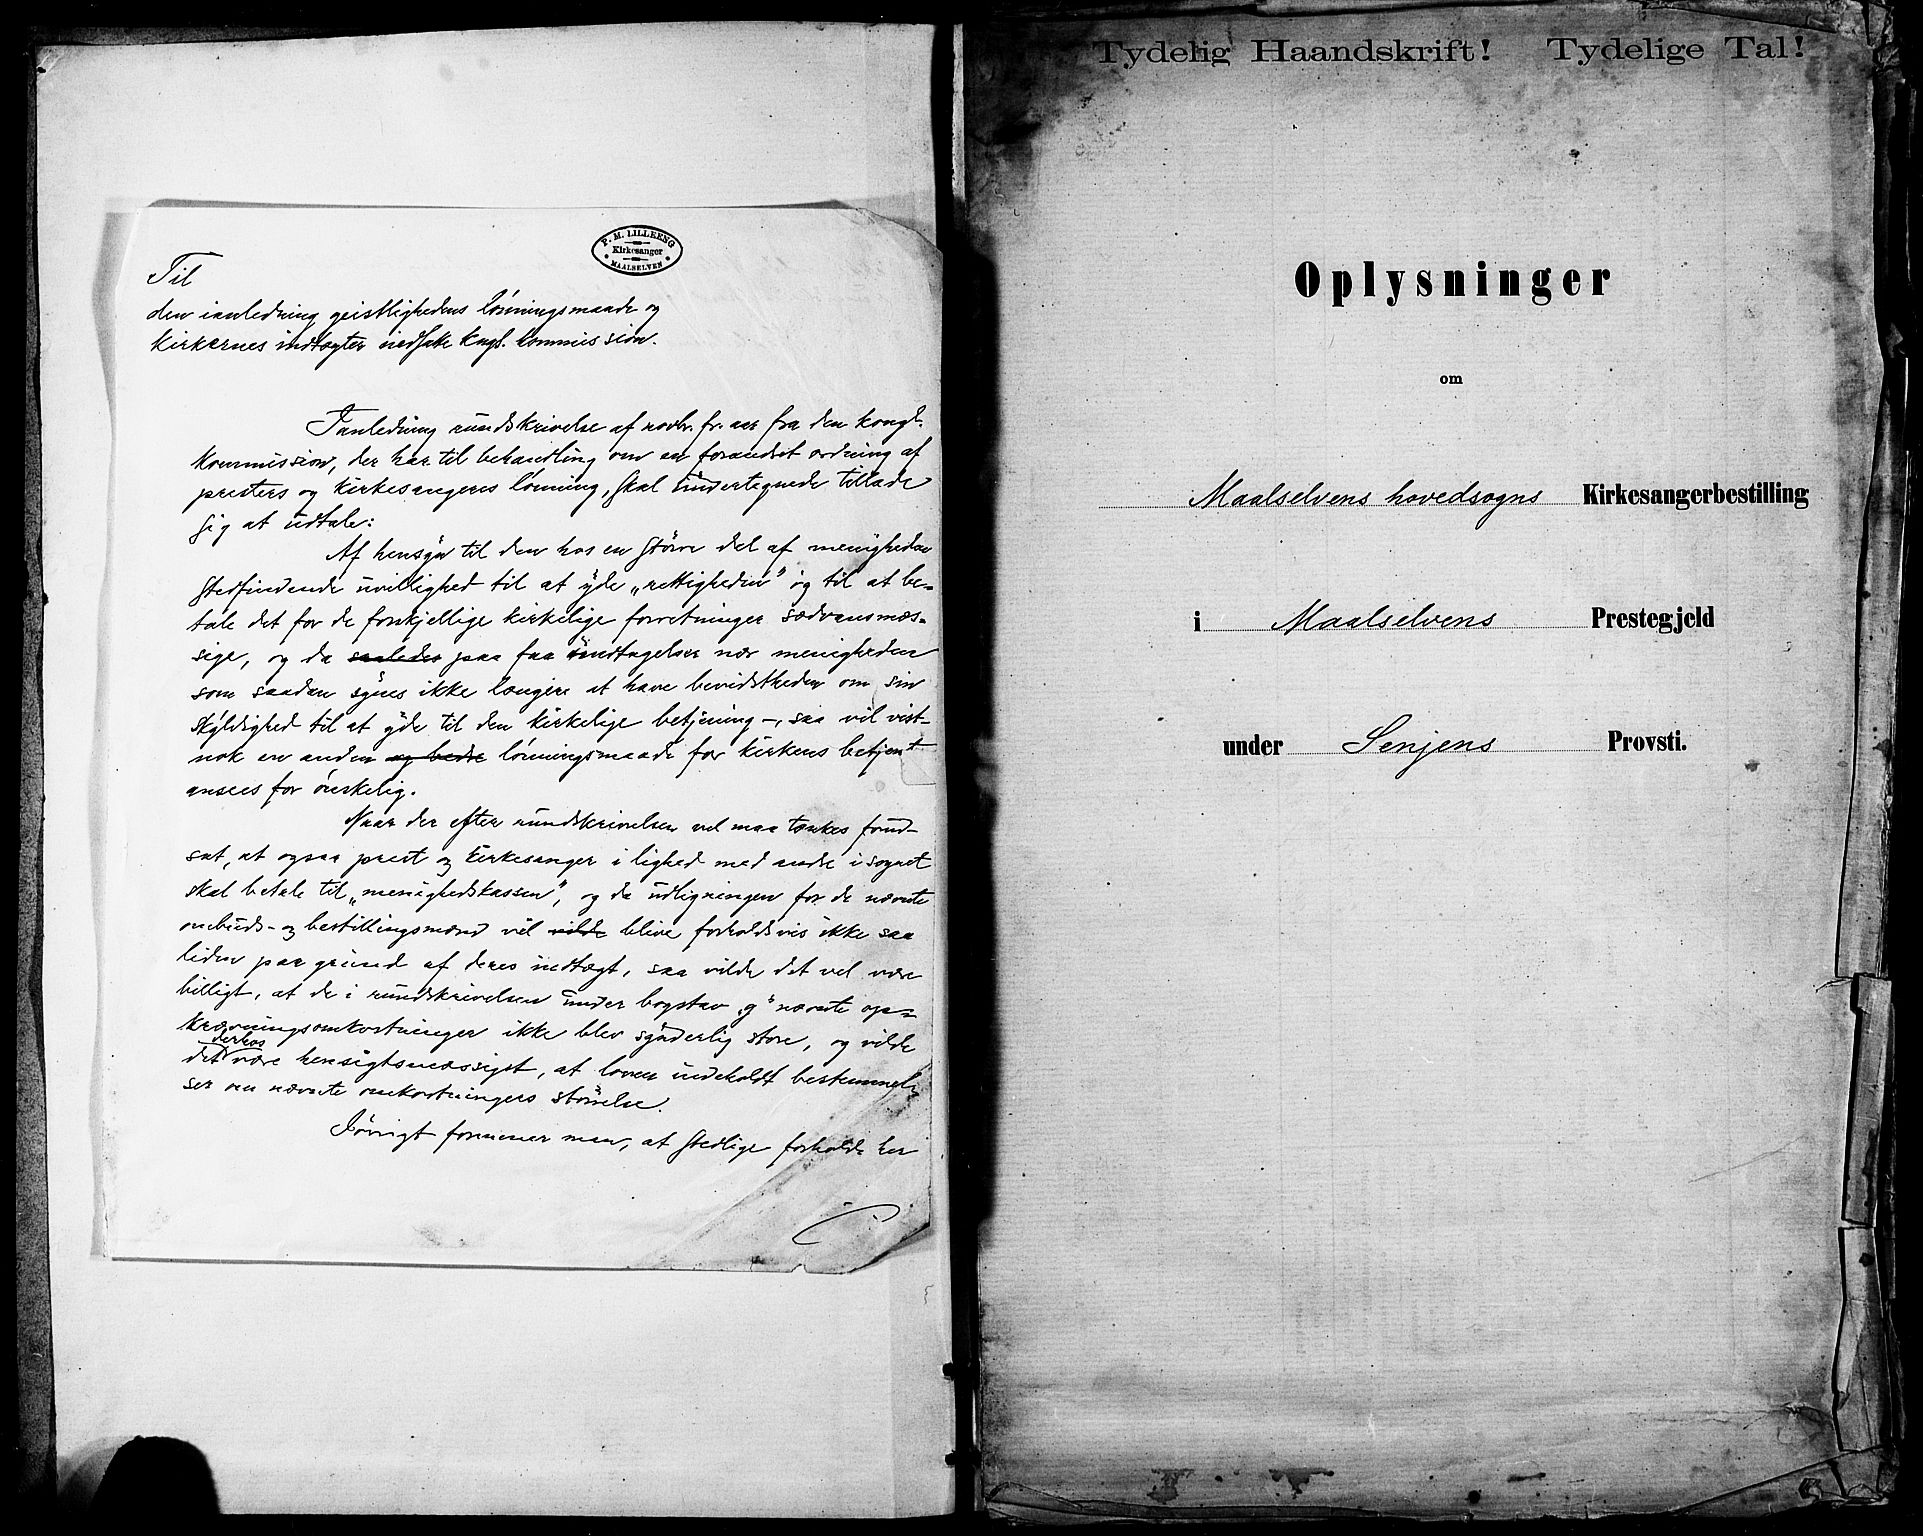 P. M. LILLEENG
Kirkesanger
MAALSELVEN
Til
den ianledning geistlighedens lønningsmaade og
kirkernes indtægter nedsatte kngl. kommission.
Ianledning rundskrivelse af novbr. fr. aar fra den kongl.
kommission, der har til behandling om en forandret ordning af
presters og kirkesangeres lønning, skal undertegnede tillade
sig at udtale:
Af hensyn til den hos en større del af menigheden
stedfindende uvillighed til at yde „rettigheden" og til at be-
tale det for de forskjellige kirkelige forretninger sædvansmæs-
sige, og da saaledes paa faa undtagelser nær menigheden
som saadan synes ikke længere at have bevidstheden om sin
skyldighed til at yde til den kirkelige betjening -, saa vil vist-
nok en anden og bedre lønningsmaade for kirkens betjent
ansees for ønskelig.
Naar der efter rundskrivelsen vel maa tænkes forud-
sat, at ogsaa prest og kirkesanger i lighed med andre i sognet
skal betale til „menighedskassen", og da udligningen for de nævnte
ombuds- og bestillingsmænd vil vilde blive forholdsvis ikke saa
liden paa grund af deres indtægt, saa vilde det vel være
billigt, at de i rundskrivelsen under bogstav „g" nævnte op-
krævningsomkostninger ikke blev synderlig store, og vilde
derhos
det være hensigtsmæssigst, at loven indeholdt bestemmel-
ser om nævnte omkostningers størrelse.
Iøvrigt formener man, at stedlige forholde her
Tydelig Haandskrift! Tydelige Tal!
Oplysninger
om
Maalselvens hovedsogns Kirkesangerbestilling
i Maalselvens Prestegjeld
under Senjens Provsti.